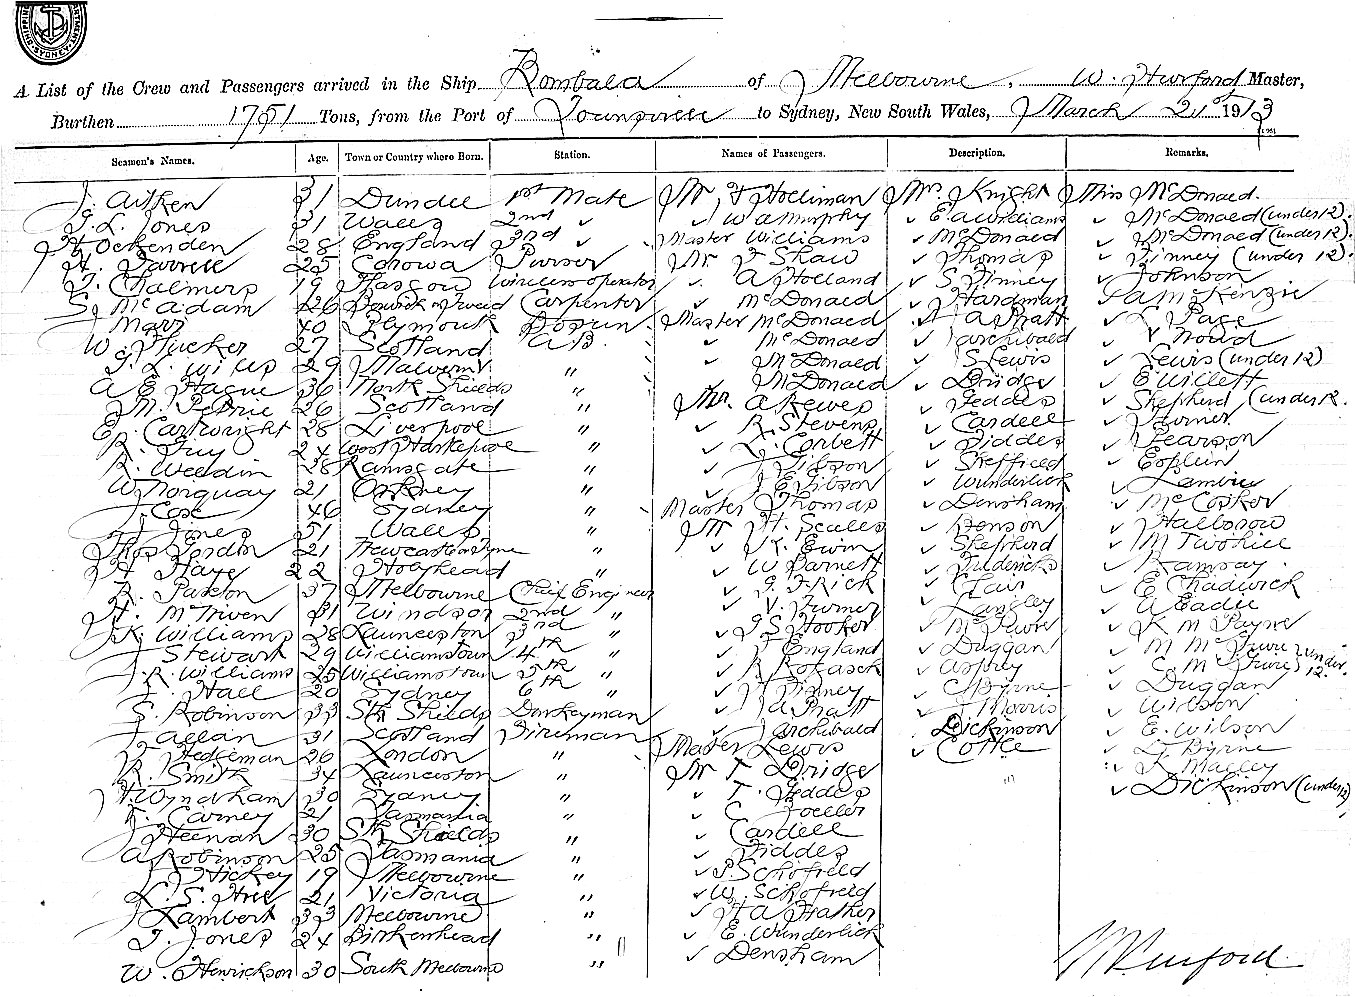 SHIPPING SYDNEY
A List of the Crew and Passengers arrived in the Ship Bombala of Melbourne, W. Hurford Master,
Burthen 1751 Tons, from the Port of Townsville to Sydney, New South Wales, March 21st 1913
Seamen's Names. Age. Town or Country where Born. Station. Names of Passengers. Description. Remarks.
J. Aitken 31 Dundee 1st Mate Mr F Holliman Mrs. Knight Miss McDonald
G. L. Jones 31 Wales 2nd " " W A Murphy " E. A Williams " McDonald (under 12).
H Ockenden 28 England 3rd " Master Williams " McDonald " McDonald (under 12).
H. Farrell 25 Corowa Purser Mr F Shaw " Thomas " Finney (under 12).
T. Chalmers 19 Glasgow Wireless operator " A Holland " S Finney " Johnson
S. McAdam 26 Berwick on Tweed Carpenter " McDonald " Hardman P A McKenzie
Marr 40 Plymouth Bosun Master McDonald " A Pratt " L Page
W. Tucker 27 Scotland A.B. " McDonald " Archibald "
29 Malvern " " McDonald " S Lewis " Lewis (under 12)
A E Hague 36 North Shields " " McDonald " Bridge " E Willett
M. Petrie 26 Scotland " Mr. A Reeves " Geddes " Shepherd (under 12.
E. Cartwright 28 Liverpool " " R. Stevens " Cardell " Turner
R. Guy 24 West Hartlepool " " L. Corbett " Fiddes " Pearson
R. Weedin 28 Ramsgate " " J Gibson " Sheffield "
W. Norquay 21 Orkney " " J. E Gibson " Wunderlich " Lambie
J. Cose 46 Sydney " Master Thomas " Densham " McCosker
J. Jones 51 Wales " Mr H. Scales " Benson "
Thos Jordin 21 Newcastle on Tyne " " J K. Ewin " Shepherd " M Twohill
H Haye 22 Holyhead " " W Barnett " Fredericks " Ramsay
R. Paxton 37 Melbourne Chief Engineer " G. F. Rich " Clair " E Chadwick
H. McNiven 31 Windsor 2nd " " V. Turner " Langley " A Eadie
J. K. Williams 28 Launceston 3rd " " G S Hooker " McClure " K M Payne
J Stewart 29 Williamstown 4th " " J England " Duggan " M McClure } under
J. R Williams 25 Williamstown 5th " " R. " Asprey " C. McClure } 12.
F. Hall 20 Sydney 6th " " H Finney " C Byrne " Duggan
S. Robinson 33 Sth Shields Donkeyman " A Pratt " J Morris " Wilson
J Allan 31 Scotland Fireman " Archibald " Dickinson " E. Wilson
J Hedgeman 26 London " Master Lewis " Coffee " L Byrne
R. Smith 34 Launceston " Mr T. Bridge " F Malley
H Wyndham 30 Sydney " " T. Geddes " Dickinson (under 12)
F. Carney 21 Tasmania " " C. Zoeller
J Heenan 30 Sth Shields " " Cardell
A Robinson 25 Tasmania " " Fiddes
J Hickey 19 Melbourne " " P. Schofield
L. S. Hill 21 Victoria " " W. Schofield
J Lambert 33 Melbourne " " H A Hather
T. Jones 24 Birkenhead " " E. Wunderlich
W. Henrickson 30 South Melbourne " " Densham
W Hurford